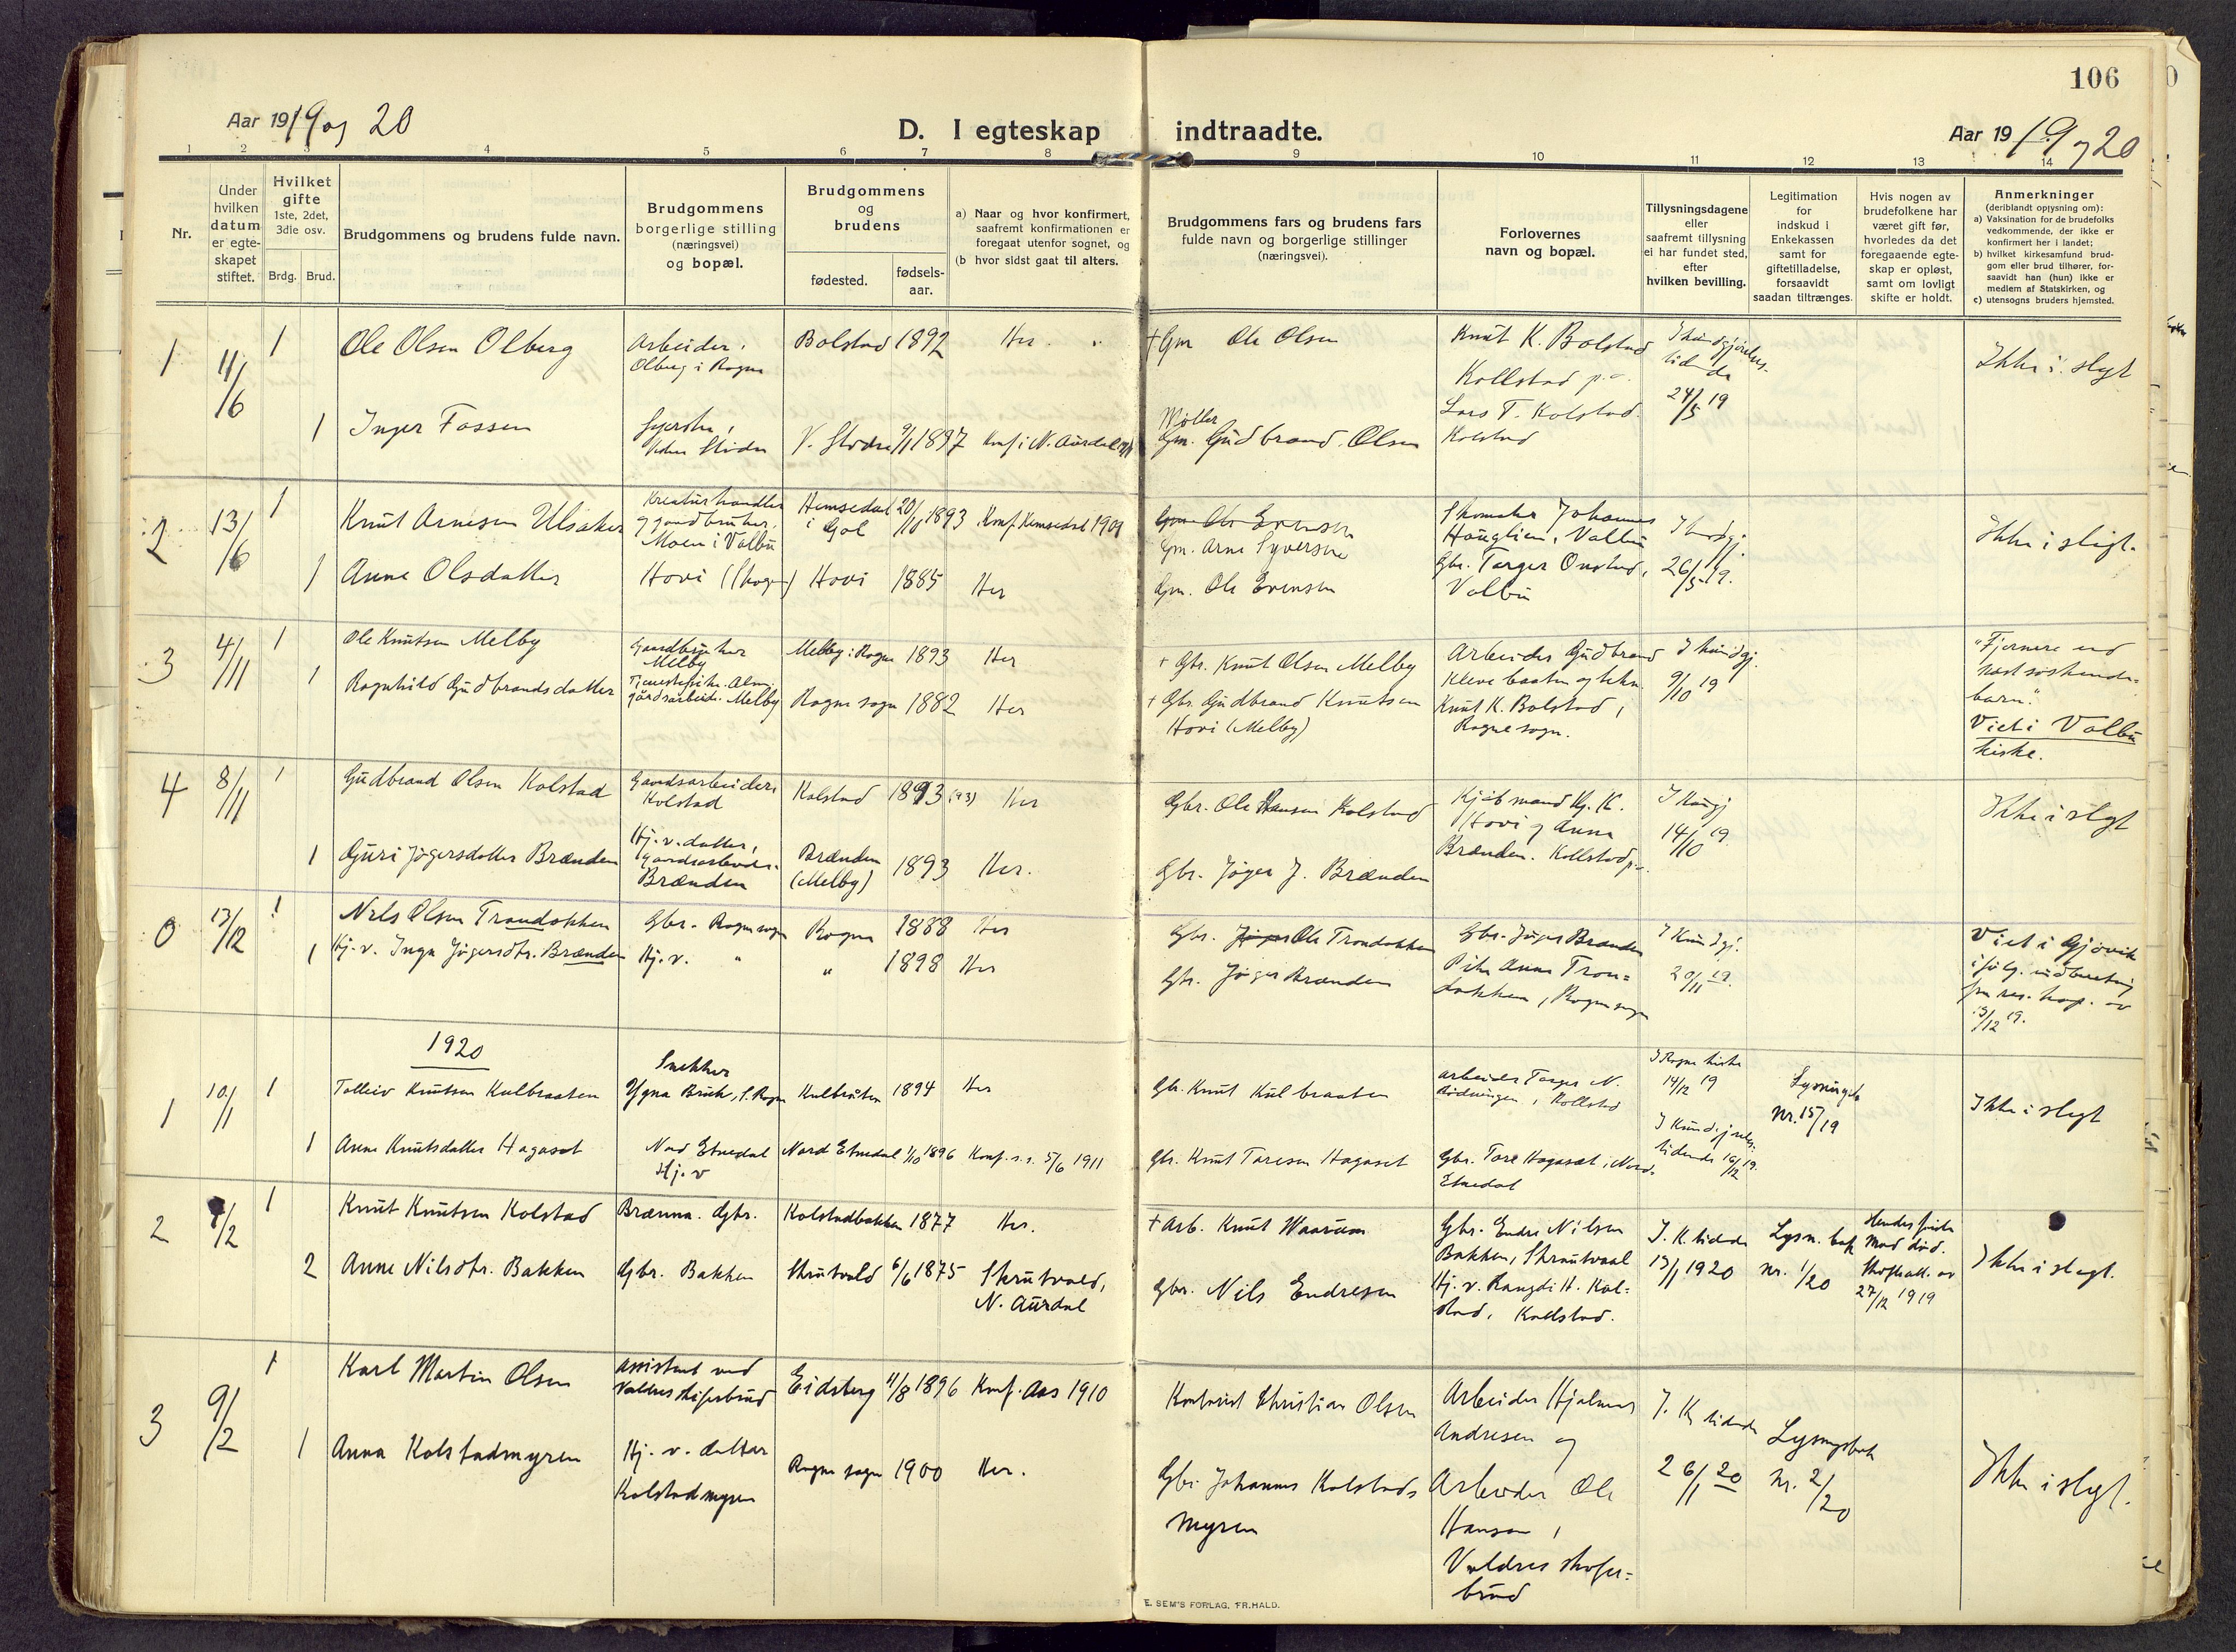 106
Aar 1919 og 20
D. I egteskap indtraadte.
Aar 1919 og 20
1 2 3 4 5 6 7 8 9 10 11 12 13 14
Nr.
Under hvilken datum er egte-skapet stiftet.
Hvilket gifte 1ste, 2det, 3die osv.
Brdg. Brud.
Brudgommens og brudens fulde navn.
Brudgommens borgerlige stilling (næringsvei) og bopæl.
Brudgommens og brudens
fødested.
fødsels-aar.
a) Naar og hvor konfirmert, saafremt konfirmationen er foregaat utenfor sognet, og
(b hvor sidst gaat til alters.
Brudgommens fars og brudens fars fulde navn og borgerlige stillinger (næringsvei).
Forlovernes navn og bopæl.
Tillysningsdagene eller saafremt tillysning ei har fundet sted, efter hvilken bevilling.
Legitimation for indskud i Enkekassen samt for giftetilladelse, forsaavidt saadan tiltrænges.
Hvis nogen av brudefolkene har været gift før, hvorledes da det foregaaende egte-skap er opløst, samt om lovligt skifte er holdt.
Anmerkninger
(deriblandt opjysning om):
a) Vaksination for de brudefolks vedkommende, der ikke er konfirmert her i landet;
b) hvilket kirkesamfund brud-gom eller brud tilhører, for-saavidt han (hun) ikke er medlem af Statskirken, og
c) utensogns bruders hjemsted.
1 11/6 1 Ole Olsen Olberg Arbeider, Olberg i Rogne Bolstad 1892 Her
† Gm Ole Olsen Knut K. Bolstad Kollstad p.a. 24/5 19 Ikke i slegt
1 Inger Fossen V. Slidre 9/1 1897 Konf i N. Aurdal
Møller Gm. Gudbrand Olsen Lars T. Kolstad. Kolstad
2 13/6 1 Knut Arnesen Ulsaker Kreaturhandler og gaardbruker, Moen i Volbu Hemsedal i Gol 20/10 1893 Konf. Hemsedal 1909
Gm Ole Evensen
Gm. Arne Syversen Skomaker Johannes Hauglien, Volbu 26/5 19. Ikke i slegt.
1 Anne Olsdatter Hovi Hovi 1885 Her
Gm. Ole Evensen Gbr. Torger Onstad, Volbu
3 4/11 1 Ole Knutsen Melby Gaardbruker Melby Melby i Rogne 1893 Her
† Gbr. Knut Olsen Melby Arbeider Gudbrand I kundgj. 9/10 19
1 Ragnhild Gudbrandsdatter gårdsarbeide. Melby Rogne sogn 1882 Her
† Gbr. Gudbrand Knutsen Hovi (Melby) Knut K. Bolstad, Rogne sogn.
"Fjernere end næstsøskende-barn."
Viet i Volbu kirke.
4 8/11 1 Gudbrand Olsen Kolstad Gaardsarbeider, Kolstad Kolstad 1893 (93) Her
Gbr. Ole Hansen Kolstad Kjøbmand Kj. K. Hovi og Anna Brænden. Kollstad p.a. 14/10 19. Ikke i slegt
1 Guri Jøgersdatter Brænden Hj.v. datter, gaardsarbeide. Brænden Brænden (Melby) 1893 Her.
Gbr. Jøger J. Brænden
0 13/12 1 Nils Olsen Trondokken Gbr. Rogne sogn Rogne 1888 Her
Gbr. Jøger Ole Trondokken Gbr. Jøger Brænden I kundgj. 20/11 19.
1 Hj.v. Inga Jøgersdtr. Brænden Hj.v. " " 1898 Her
Gbr. Jøger Brænden Pike Anne Tron-dokken, Rogne sogn
Viet i Gjøvik ifølg. indberetning fra res. kap. av 13/12 19.
1920
1 10/1 1 Tolleiv Knutsen Kulbraaten Snekker Ygna Bruk, S. Rogne Kulbråten 1894 Her
Gbr. Knut Kulbraaten arbeider Torger N. Rødningen, Kollstad I Rogne kirke 14/12 19 Nr. 15/19 Ikke i slegt
1 Anne Knutsdatter Hagaset Nord Etnedal Hj.v Nord Etnedal 1/10 1896 Konf. s.s. 5/6 1911
Gbr. Knut Toresen Hagaset Gbr. Tore Hagaset i Nord-Etnedal I Kundgjørelses-tidende 16/12 19.
2 1/2 1 Knut Knutsen Kolstad Brænna. Gbr. Kolstadbakken 1877 Her.
† Arb. Knut Waarum Gbr. Endre Nilsen Bakken, Skrutvaal I. K. tidende 13/1 1920 Lysn. bok nr. 1/20
2 Anne Nilsdtr. Bakken Gbr. Bakken Skrutvold 6/6 1875 Skrutvold, N. Aurdal
Gbr. Nils Endresen Hj.v. Rangdi H. Kol-stad, Kollstad.
Hendes første mand død. Skifteatt. av 27/12 1919
Ikke i slegt.
3 9/2 1 Karl Martin Olsen Assistent ved Valdres skiferbrud Eidsberg 11/8 1896 Konf. Aas 1910
Kontorist Christian Olsen Arbeider Hjalmar Andresen og I. K. tidende 26/1 20 Lysningsbok nr. 2/20 Ikke i slegt.
1 Anna Kolstadmyren Hj.v. datter Kolstadmyren Rogne sogn 1900 Her.
Gbr. Johannes Kolstads-myren Arbeider Ole Hansen, Valdres skifer-brud
E. SEM'S FORLAG, FR.HALD.